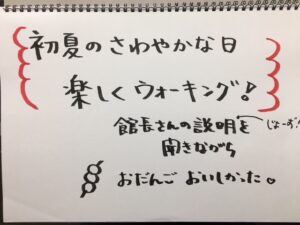 初夏のさわやかな日
楽しくウォーキング!
館長さんの説明を
聞きながら
おだんごおいしかった。